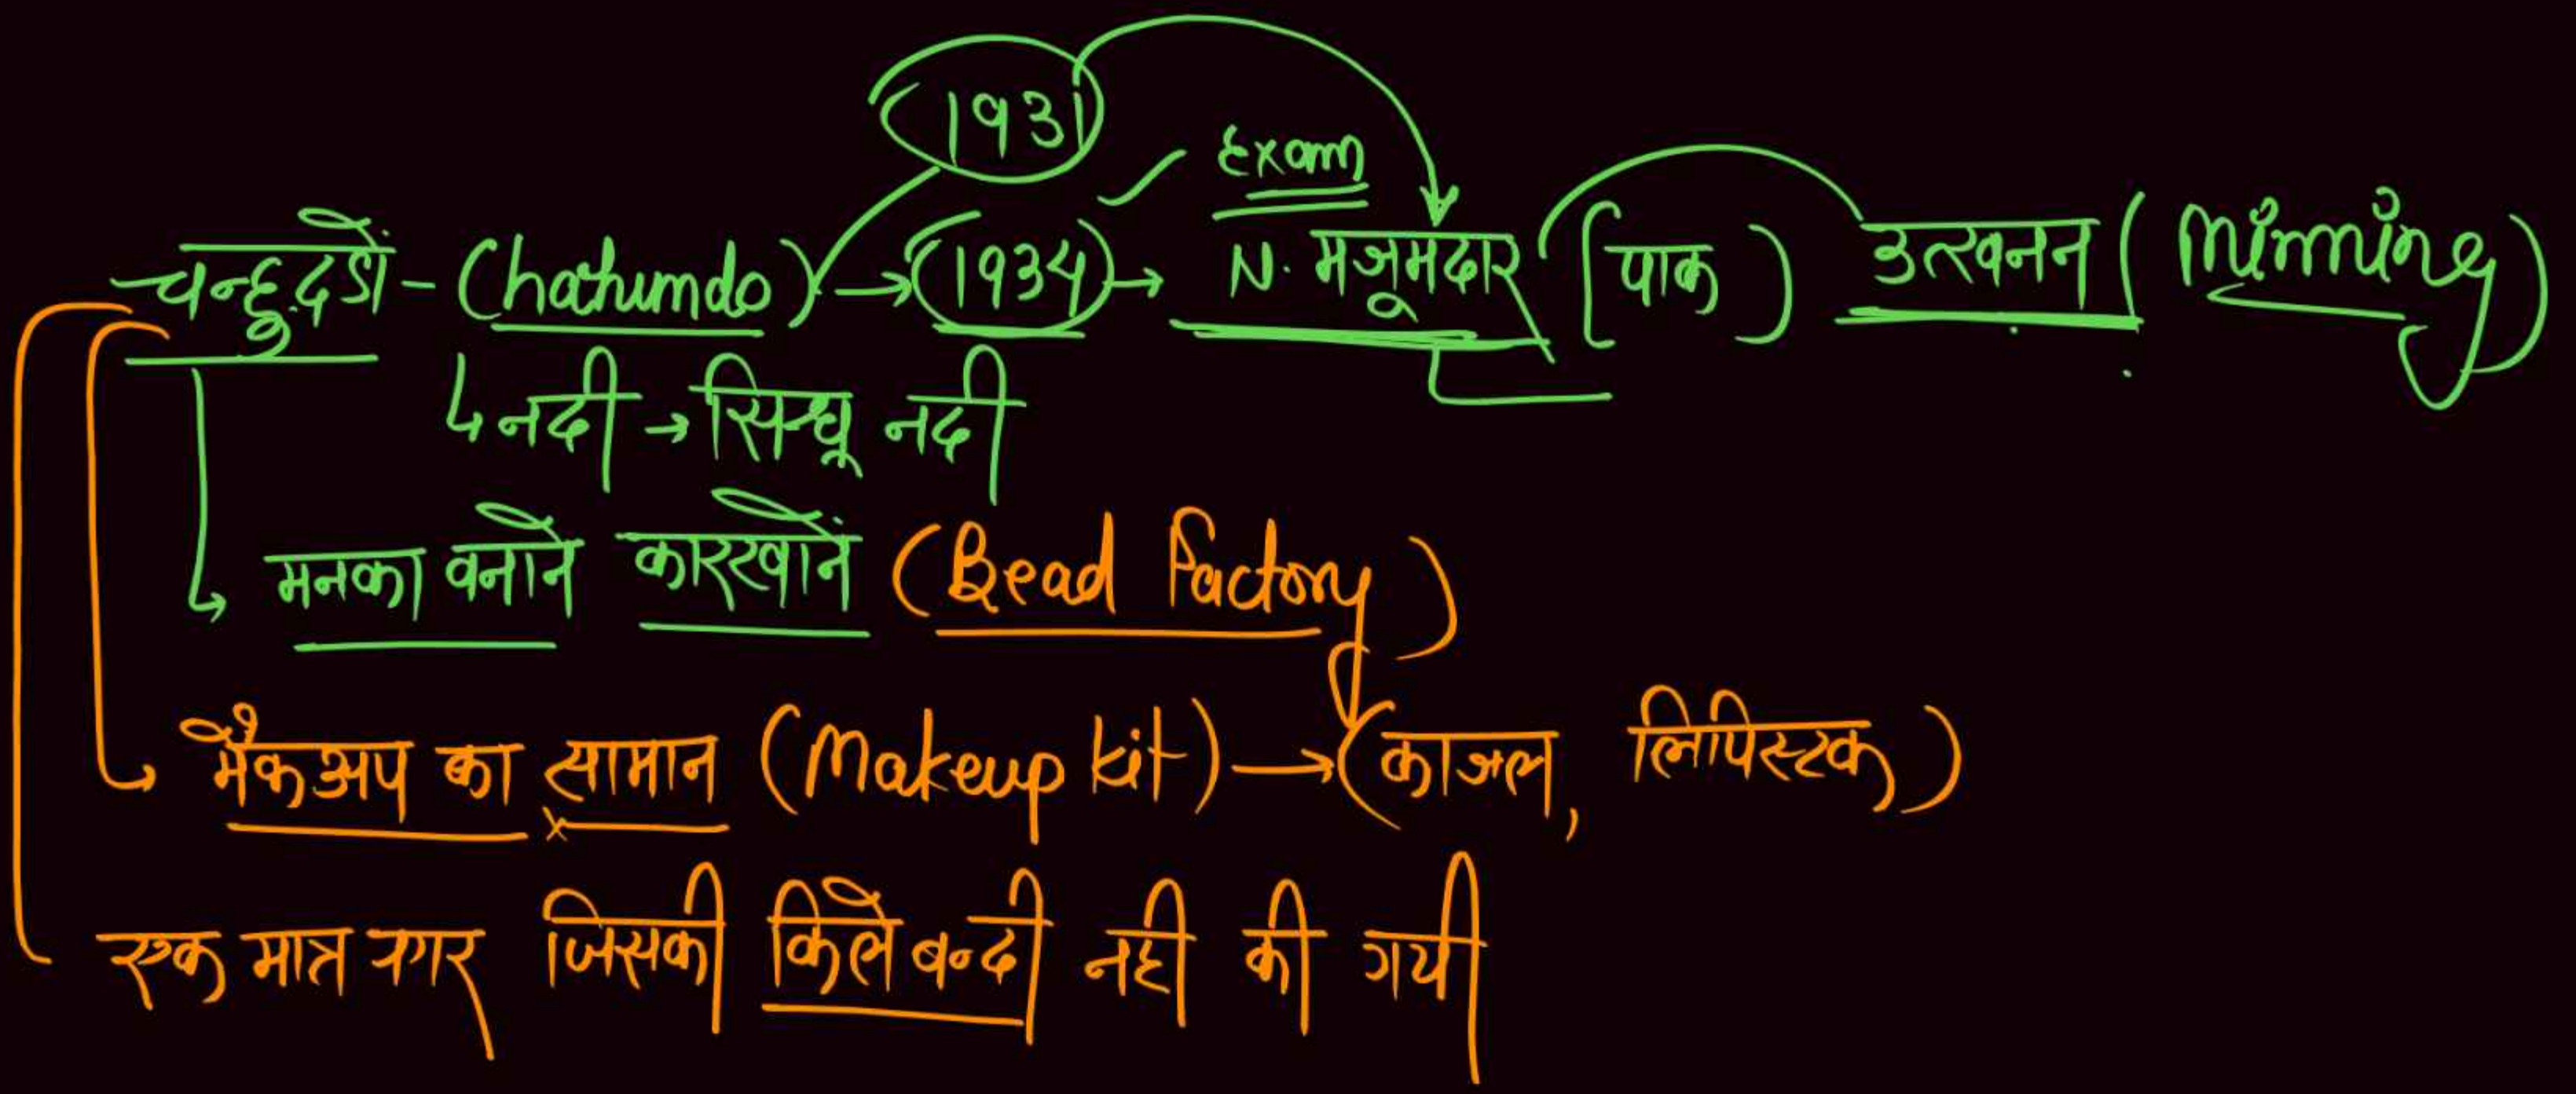 1931
Exam
चन्हुदडों - (Chahumdo) → (1934) → N. मजूमदार [पाक) उत्खनन (Minning)
↳ नदी → सिन्धू नदी
↳ मनका वनाने कारखाने (Bead Factory)
↳ मैकअप का सामान (Makeup kit) → (काजल, लिपिस्टक)
एक मात्र नगर जिसकी किलेबन्दी नही की गयी